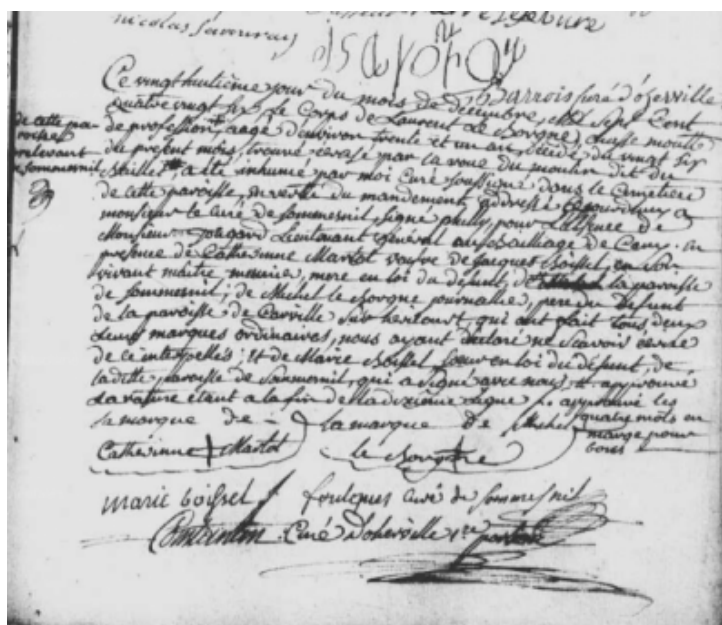 nicolas
Barrois curé d'oherville
Ce vingt huitième jour du mois de décembre, mil sept cent
quatre vingt six le Corps de Laurent le Borgne, chasse moulte
de cette pa-
roisse
relevant
sommesnil
de profession, aagé d'environ trente et un an, décédé du vingt six
du présent mois, trouvé écrasé par la roue du moulin dit du
a été inhumé par moi curé soussigné dans le Cimetière
de cette paroisse, en vertu du mandement addressé ce jourd'huy a
monsieur le curé de sommesnil signé pour l'absence de
Monsieur Lieutenant général au Bailliage de Caux. en
presence de Catherinne Martot veuve de Jacques Boissel, en son
vivant maître meunier, mere en loi du défunt, de la paroisse
de sommesnil; de Michel le Borgne journallier, pere du défunt
de la paroisse de Carville sur hericourt, qui ont fait tous deux
leurs marques ordinaires, nous ayant déclaré ne scavoir écrire
de ce interpellés; et de Marie Boissel, soeur en loi du défunt, de
laditte paroisse de Sommesnil, qui a signé avec nous, et approuvé
la rature étant a la fin de la dixième ligne approuvé les
la marque de la marque de Michel quatre mots en
marge pour
bons
Catherinne Martot le Borgne
marie boissel foulques curé de sommesnil
Curé d'oherville